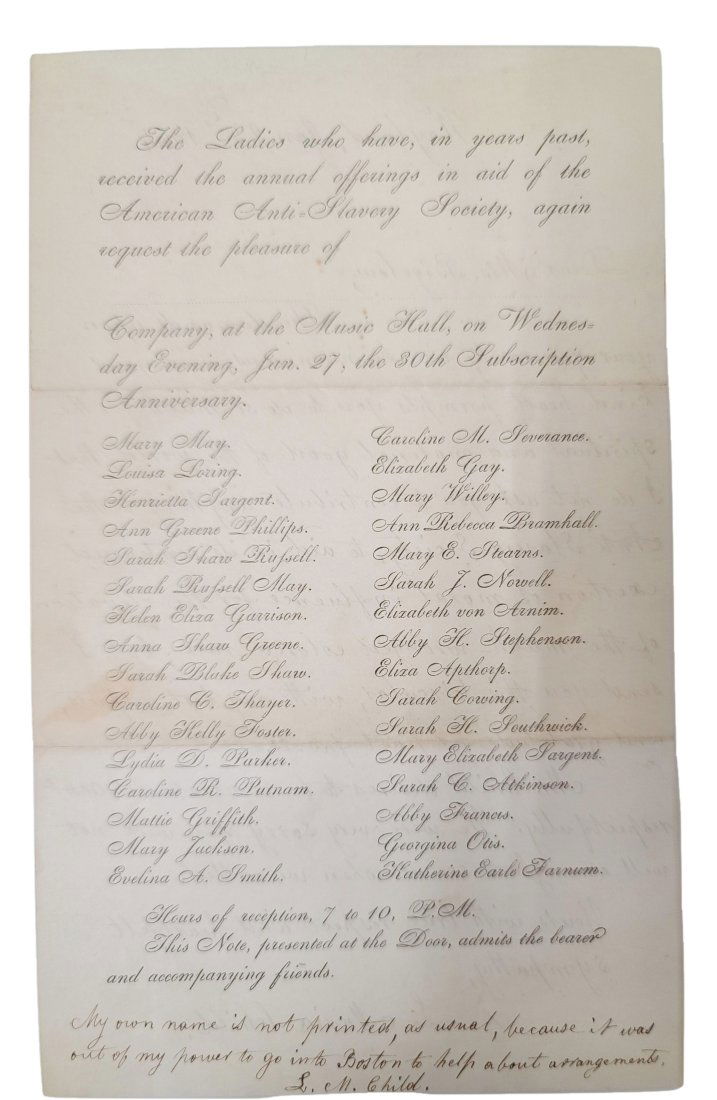 The Ladies who have, in years past,
received the annual offerings in aid of the
American Anti=Slavery Society, again
request the pleasure of
Company, at the Music Hall, on Wednes=
day Evening, Jan. 27, the 30th Subscription
Anniversary.
Mary May.
Louisa Loring.
Henrietta Sargent.
Ann Greene Phillips.
Sarah Shaw Russell.
Sarah Russell May.
Helen Eliza Garrison.
Anna Shaw Greene.
Sarah Blake Shaw.
Caroline C. Thayer.
Abby Kelly Foster.
Lydia D. Parker.
Caroline R. Putnam.
Mattie Griffith.
Mary Jackson.
Evelina A. Smith.
Caroline M. Severance.
Elizabeth Gay.
Mary Willey.
Ann Rebecca Bramhall.
Mary E. Stearns.
Sarah J. Nowell.
Elizabeth von Arnim.
Abby H. Stephenson.
Eliza Apthorp.
Sarah Cowing.
Sarah H. Southwick.
Mary Elizabeth Sargent.
Sarah C. Atkinson.
Abby Francis.
Georgina Otis.
Katherine Earle Farnum.
Hours of reception, 7 to 10, P.M.
This Note, presented at the Door, admits the bearer
and accompanying friends.
My own name is not printed, as usual, because it was
out of my power to go into Boston to help about arrangements.
L. M. Child.